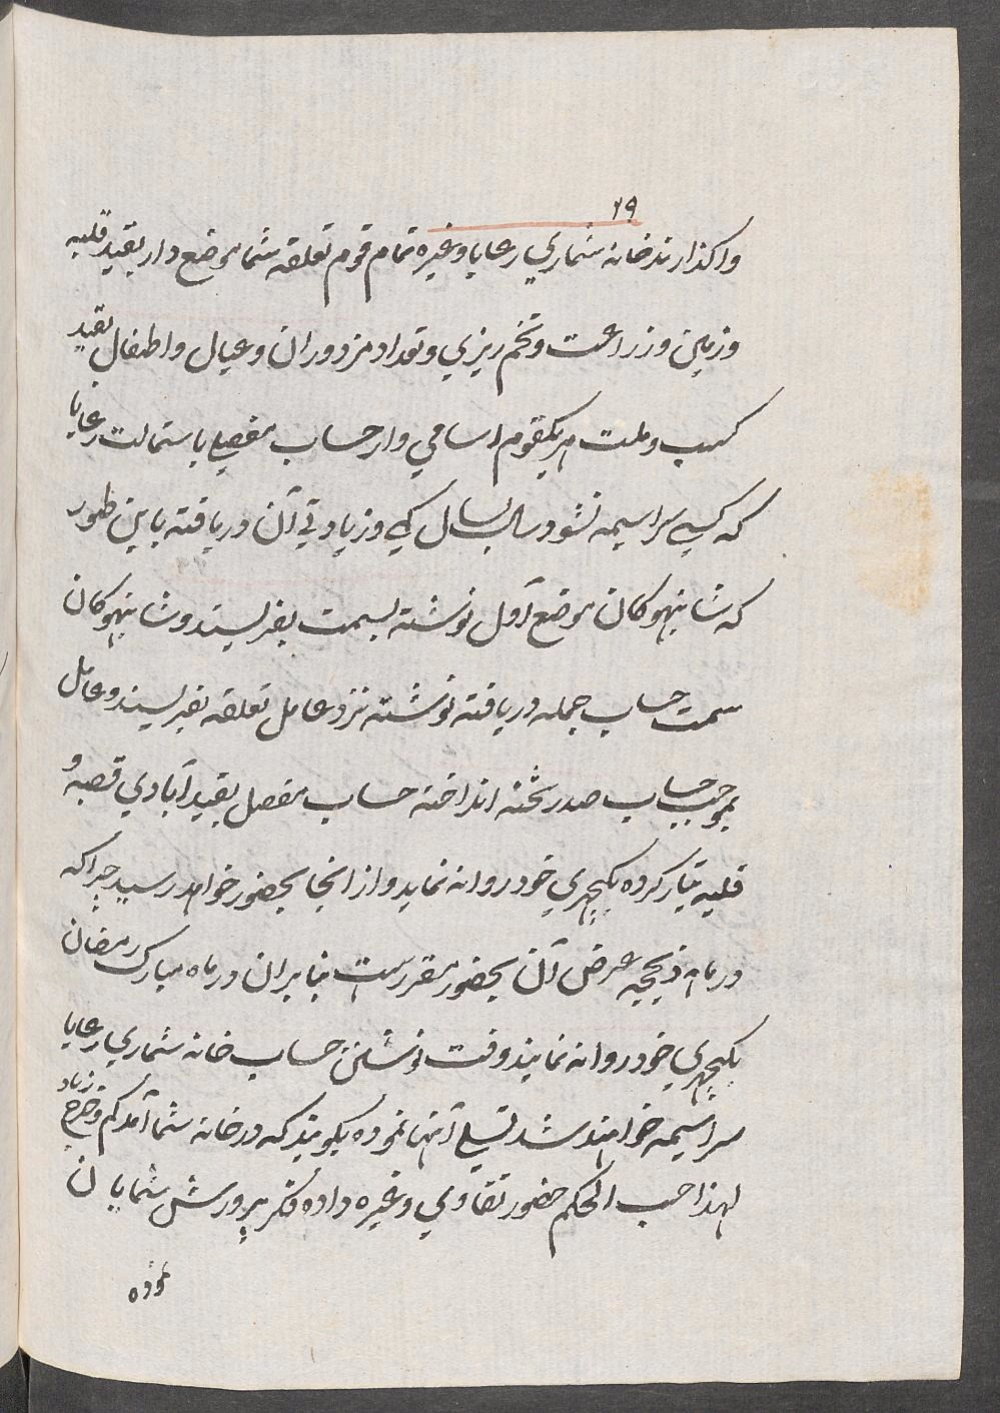 ۲۹
واکذارند خانه شماري رعایا وغیره تمام قوم تعلقه شما موضع وار بقید قلبه
وزمین وزراعت وتخم ریزي وتعداد مزدوران وعیال واطفال بقید
کسب وملت هر یکقوم اسامي وار حساب مفصل باستمالت رعایا
که کسي سراسیمه نشود سال بسال کمي وزیادتي آن دریافته باین طور
که شانبهوکان موضع اول نوشته بسمت بفرلیسند وشانبهوکان
سمت حساب جمله دریافته نوشته نزد عامل تعلقه بفرلیسند وعامل
بموجب حساب صدر تخته انداخته حساب مفصل بقید آبادي قصبه و
قلبه تیار کرده بکچهري خود روانه نماید واز انجا بحضور خواهد رسید چراکه
در ماه ذیحجه عرض آن بحضور مقررست بنابران در ماه مبارک رمضان
بکچهري خود روانه نمایند وقت نوشتن حساب خانه شماري رعایا
سراسیمه خواهند شد تسلي آنها نموده بکویند که در خانه شما آمد کم وخرج زیاد
لهذا حسب الحکم حضور تقاوي وغیره داده فکر پرورش شمایان
نموده